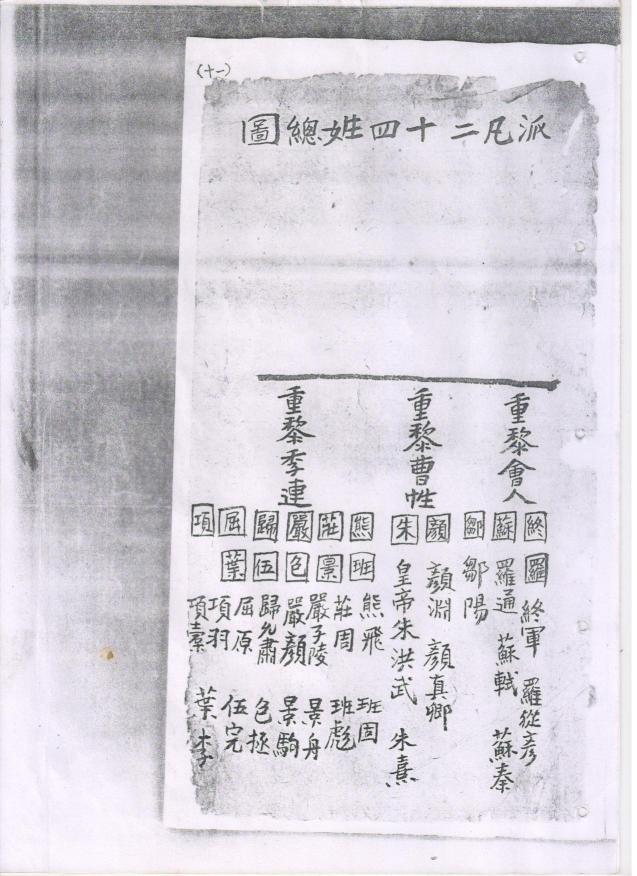 (十一)
派凡二十四姓總圖
重黎會人
終 蘇 鄒
羅
終軍 羅從彥
羅通 蘇軾 蘇秦
鄒陽
重黎曹姓
顏 朱
顏淵 顏真卿
皇帝朱洪武 朱熹
重黎季連
熊 莊 嚴 歸 屈 項
班 景 包 伍 葉
熊飛 班固
莊周 班彪
嚴子陵 景舟
嚴顏 景駒
歸允肅 包拯
屈原 伍完
項羽 葉李
項橐